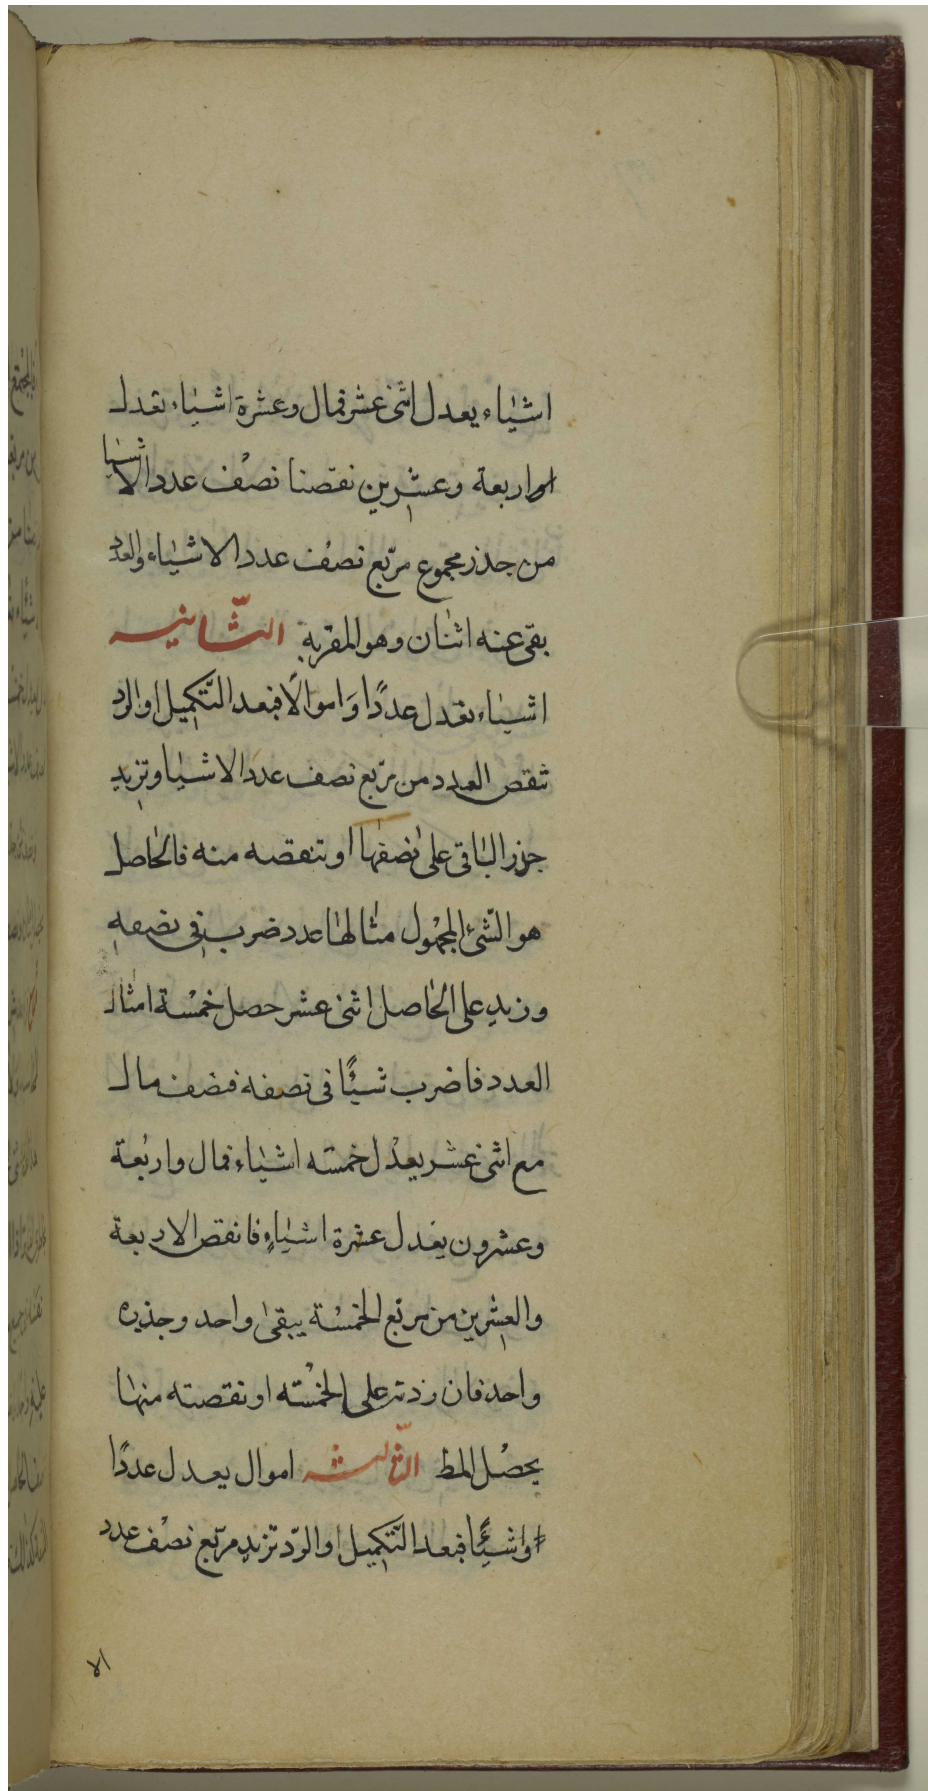 اشياء يعدل اثنى عشر فمال وعشرة اشياء تعدل
اربعة وعشرين نقصنا نصف عدد الاشيا
من جذر مجموع مربّع نصف عدد الاشياء والعدد
بقى عنه اثنان وهو المقربه الثّانيه
اشياء تعدل عددًا وَاموالًا فبعد التّكميل او الردّ
تنقص العدد من مربّع نصف عدد الاشيا وتزيد
جزر الباقى على نصفها او تنقصه منه فالحاصل
هو الشّئ المجهول مثالها عدد ضرب فى نصفه
وزيد على الحاصل اثنى عشر حصل خمسة امثال
العدد فاضرب شيئًا فى نصفه فنصف مال
مع اثنى عشر يعدل خمسته اشياء فمال واربعة
وعشرون يعدل عشرة اشياءٍ فانقص الاربعة
والعشرين من مربّع الخمسة يبقى واحد وجذره
واحد فان زدته على الخمسته او نقصته منها
يحصل المط الثّالثه اموال يعدل عددًا
واشيئًا فبعد التّكميل او الردّ تزيد مربّع نصف عدد
الا